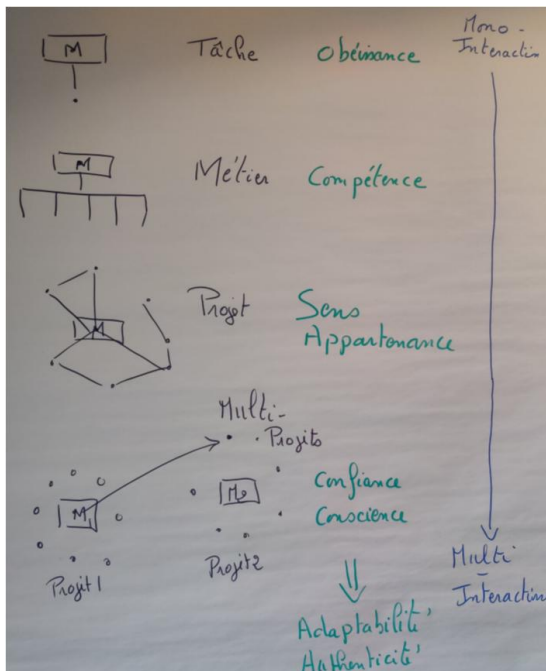 M Tâche Obéissance Mono-
Interaction
M Métier Compétence
Projet Sens
M Appartenance
Multi-
Projets
M1 M2 Confiance
Conscience
Projet 1 Projet 2 Multi
-
Interaction
Adaptabilité
Authenticité